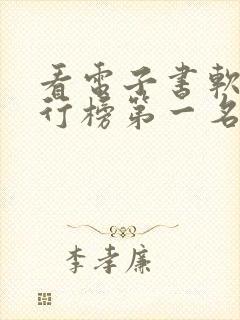 看電子書軟
行榜第一名
李孝廉